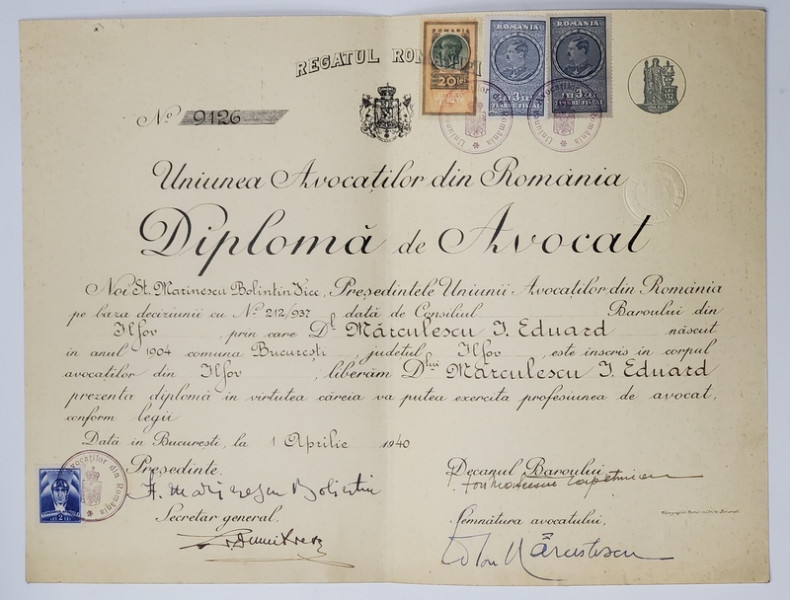 REGATUL ROMÂNIEI
ROMANIA
20 LEI
ROMANIA
LEI 3 LEI
TIMBRU FISCAL
ROMANIA
LEI 3 LEI
TIMBRU FISCAL
Uniunea Avocaților din România
Uniunea Avocaților din România
No 9126
Uniunea Avocaților din România
Diplomă de Avocat
Noi St. Marinescu Bolintin Vice, Președintele Uniunii Avocaților din România
pe baza deciziunii cu No 212/937 dată de Consiliul Baroului din
Ilfov, prin care Dl Mărculescu I. Eduard născut
in anul 1904 comuna București, județul Ilfov, este inscris in corpul
avocaților din Ilfov, liberăm Dlui Mărculescu I. Eduard
prezenta diplomă in virtutea căreia va putea exercita profesiunea de avocat,
conform legii
Dată in București, la 1 Aprilie 1940
Președinte.
Decanul Baroului
St. Marinescu Bolintin
Secretar general.
Semnătura avocatului,
Avocaților din România
LEI 2 LEI